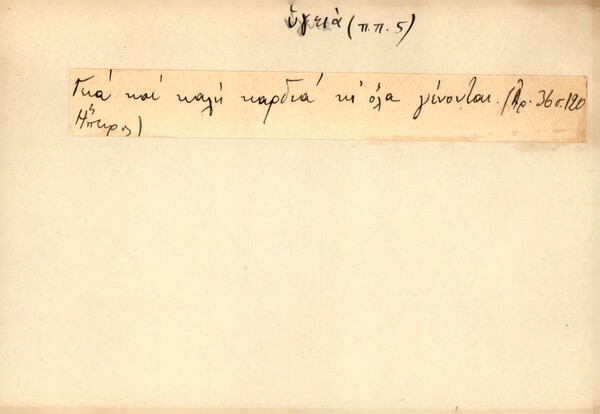 ὑγειὰ (π.π. 5)
Γειά καί καλή καρδιά κι' ὅλα γίνονται. (Ἀρ. 36 σ. 120
Ἤπειρος)